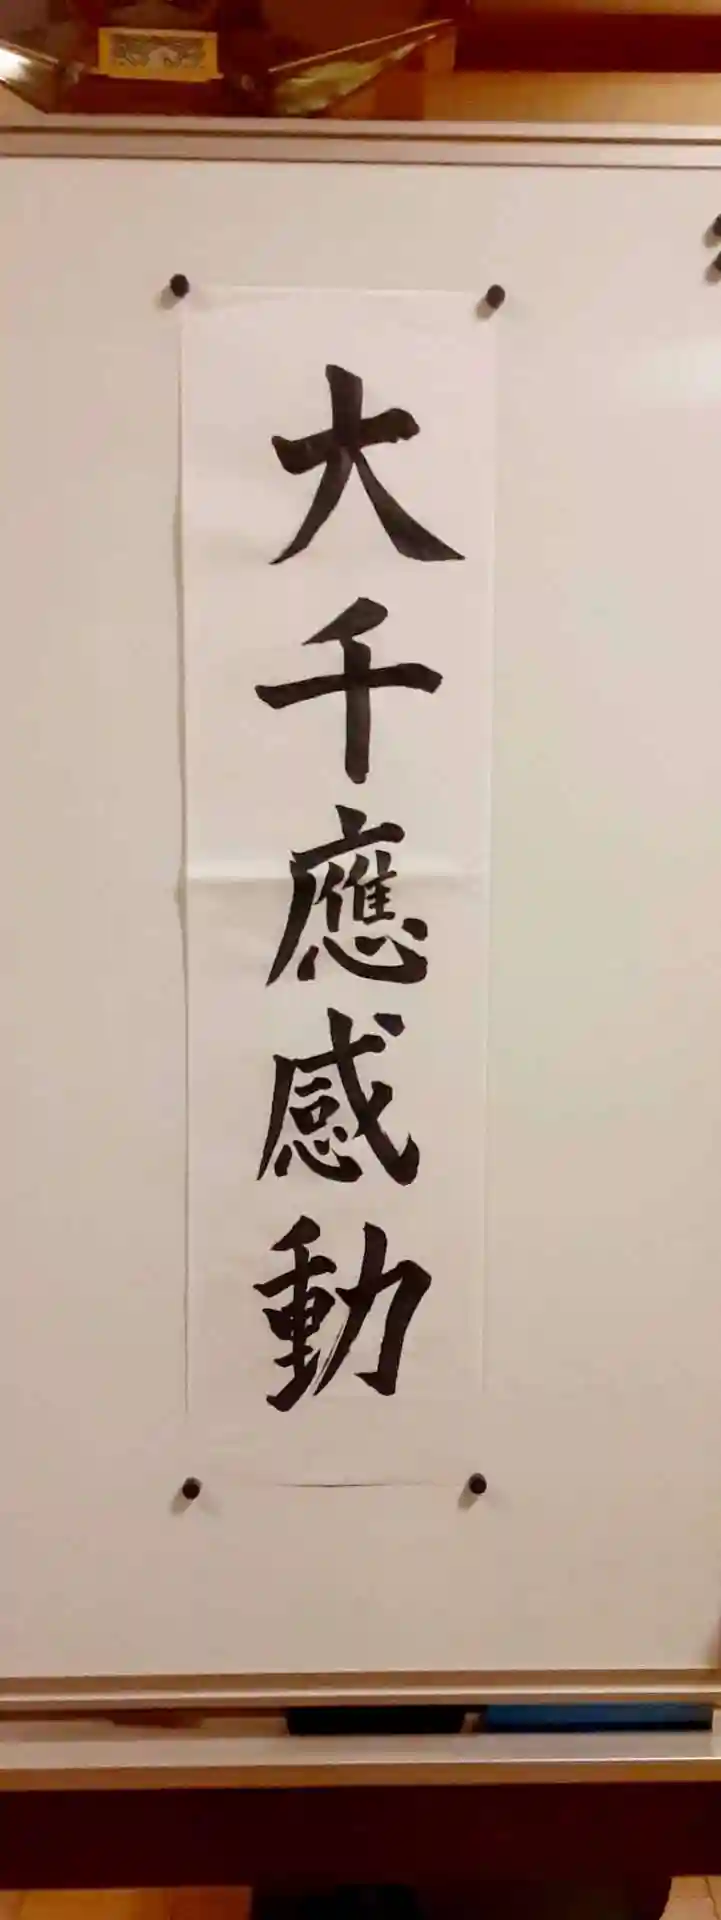 大千應感動